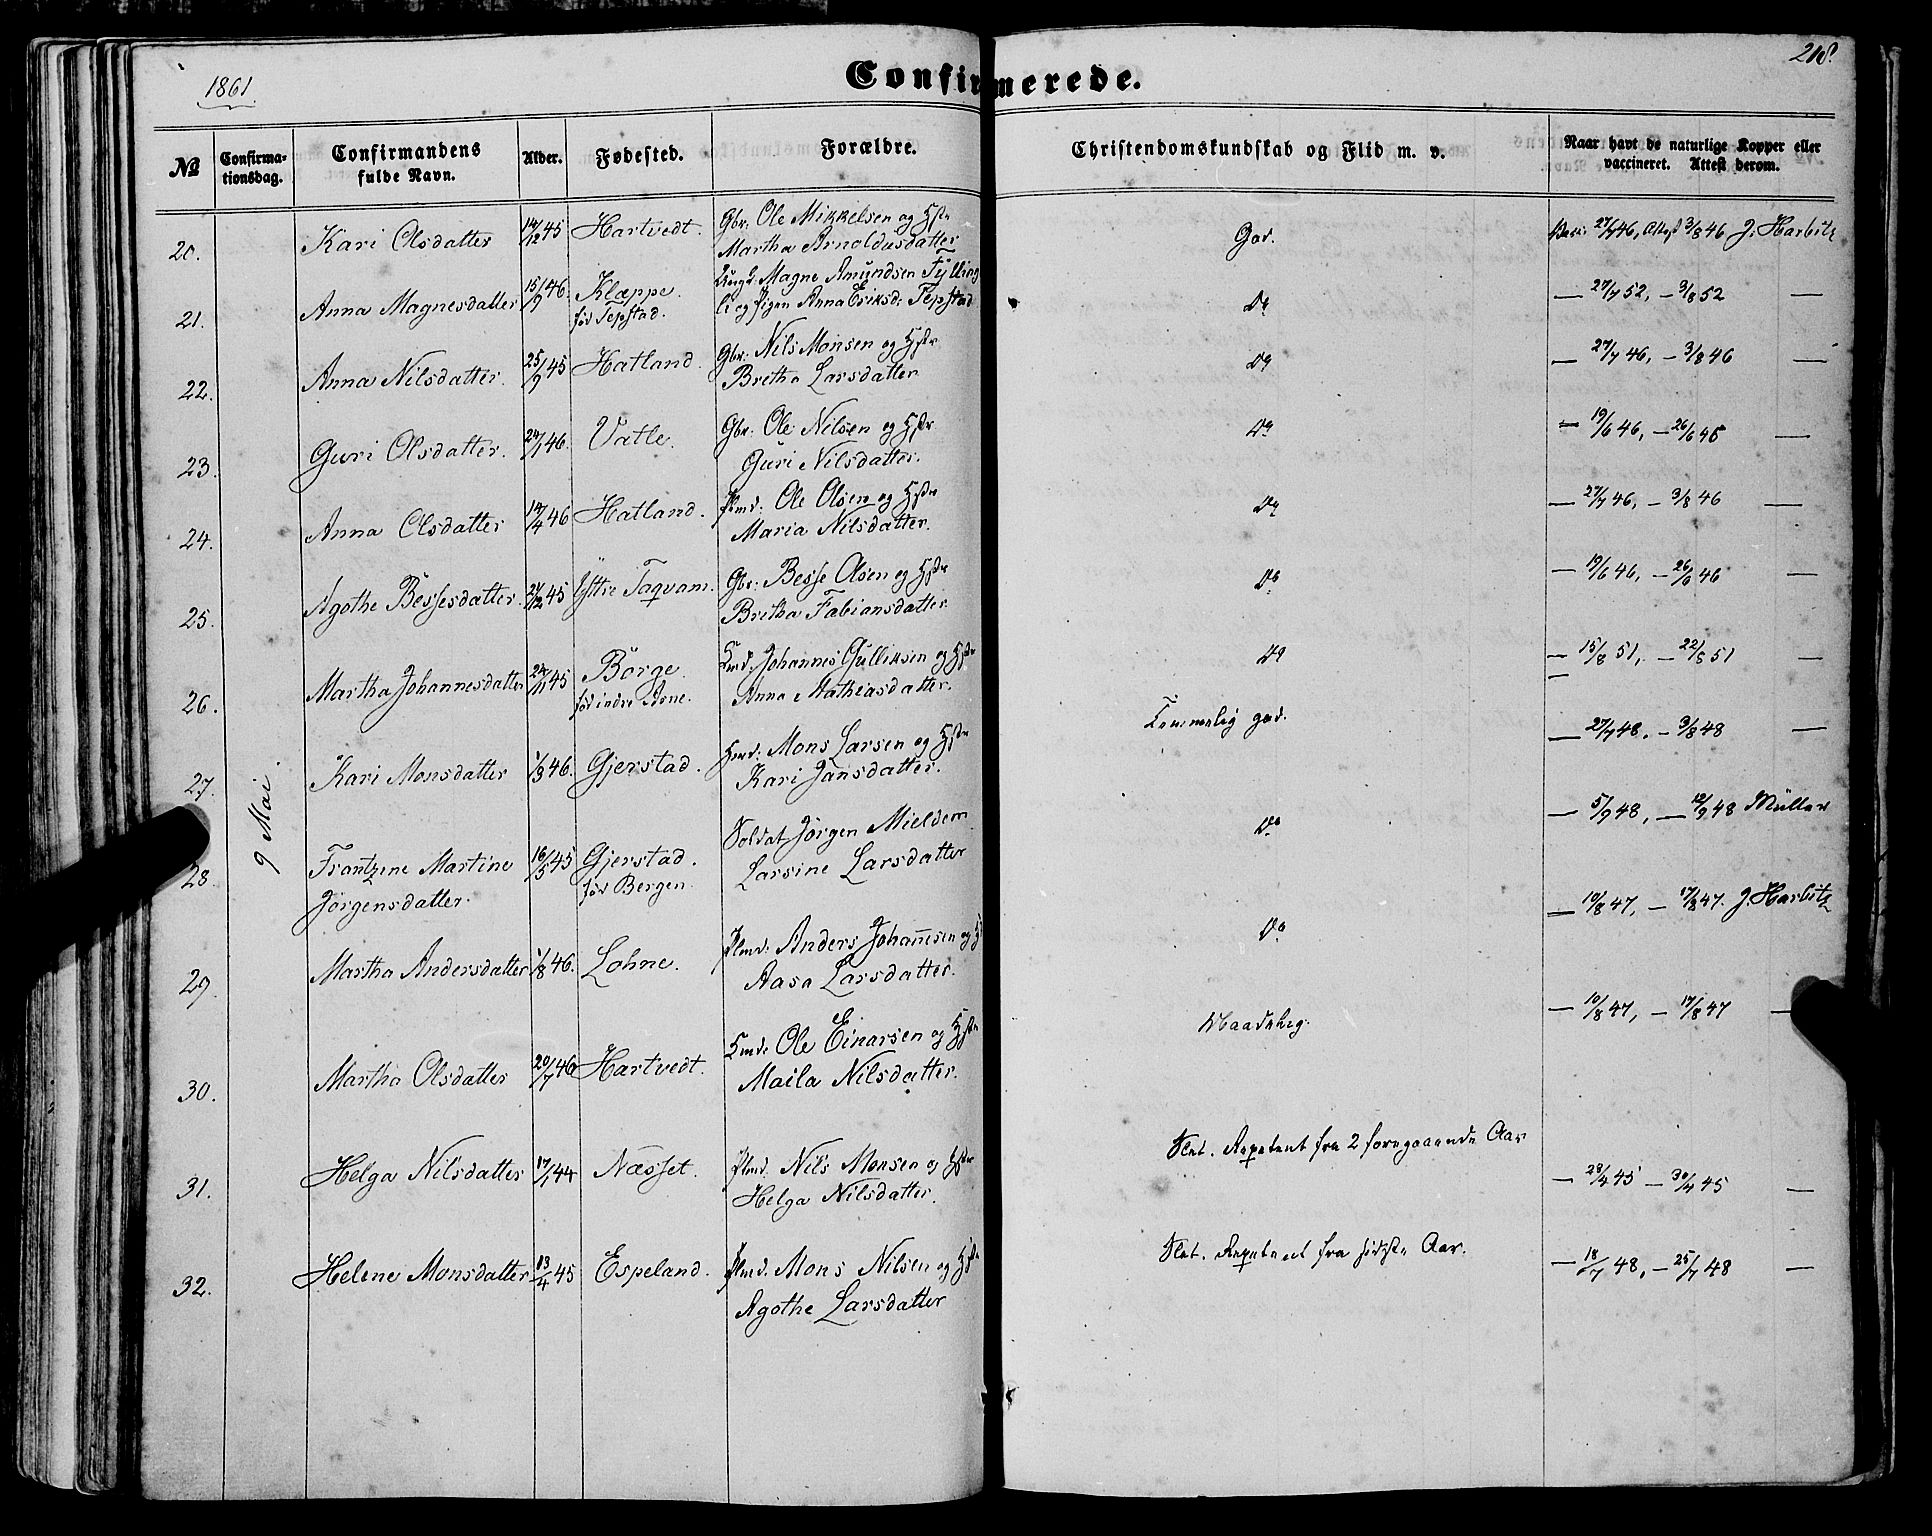 1861
Confirmerede.
218.
№
Confirma-
tionsdag.
Confirmandens
fulde Navn.
Alder.
Fødested.
Forældre.
Christendomskundskab og Flid m. v.
Naar havt de naturlige Kopper eller
vaccineret. Attest derom.
9 Mai.
20. Kari Olsdatter 14/12 45 Hartvedt. Gbr: Ole Mikkelsen og Hstr
Martha Arnoldusdatter
God. Vacc: 27/7 46, Attest 3/8 46 J. Harbitz
21. Anna Magnesdatter 15/9 46. Klæppe. Ungd: Magne Amundsen Fylling
fød Tepstad. li og Pigen Anna Eriksd: Tepstad
Do — 27/7 52, — 3/8 52 —
22. Anna Nilsdatter. 25/9 45 Hatland. Gbr: Nils Monsen og Hstr
Bretha Larsdatter
Do — 27/7 46, — 3/8 46 —
23. Guri Olsdatter. 24/1 46. Vatle. Gbr: Ole Nilsen og Hstr
Guri Nilsdatter.
Do — 19/6 46, — 26/6 46 —
24. Anna Olsdatter 14/4 46 Hatland. Plmd: Ole Olsen og Hstr
Maria Nilsdatter.
Do — 27/7 46, — 3/8 46 —
25. Agothe Bessesdatter. 21/12 45 Ystre Taqvam. Gbr: Besse Olsen og Hstr
Bretha Fabiansdatter.
Do — 19/6 46, — 26/6 46 —
26. Martha Johannesdatter 24/11 45 Borge. Hmd: Johannes Gulliksen og Hstr
fød indre Arne. Anna Mathiasdatter.
Do — 15/8 51, — 22/8 51 —
27. Kari Monsdatter 1/3 46. Gjerstad. Hmd: Mons Larsen og Hstr
Kari Jansdatter.
Temmelig god. — 27/7 48, — 3/8 48 —
28. Frantzine Martine 16/5 45 Gjerstad. Soldat Jørgen Mieldem
Jørgensdatter. fød Bergen. Larsine Larsdatter
Do — 5/9 48, — 12/9 48 Müller
29. Martha Andersdatter 1/8 46. Lohne. Plmd: Anders Johannesen og H
Aasa Larsdatter.
Do — 10/8 47, — 17/8 47. J. Harbitz
30. Martha Olsdatter 20/7 46 Hartvedt. Hmd: Ole Einarsen og Hstr
Maila Nilsdatter.
Maadelig. — 10/8 47, — 17/8 47 —
31. Helga Nilsdatter 17/1 44 Næsset. Plmd. Nils Monsen og Hstr
Helga Nilsdatter.
Slet. Repetent fra 2 foregaaende Aar
— 23/4 45 — 30/4 45 —
32. Helene Monsdatter 13/4 45 Espeland. Plmd. Mons Nilsen og Hstr
Agothe Larsdatter
Slet. Repetent fra sidste Aar.
— 18/7 48, — 25/7 48 —